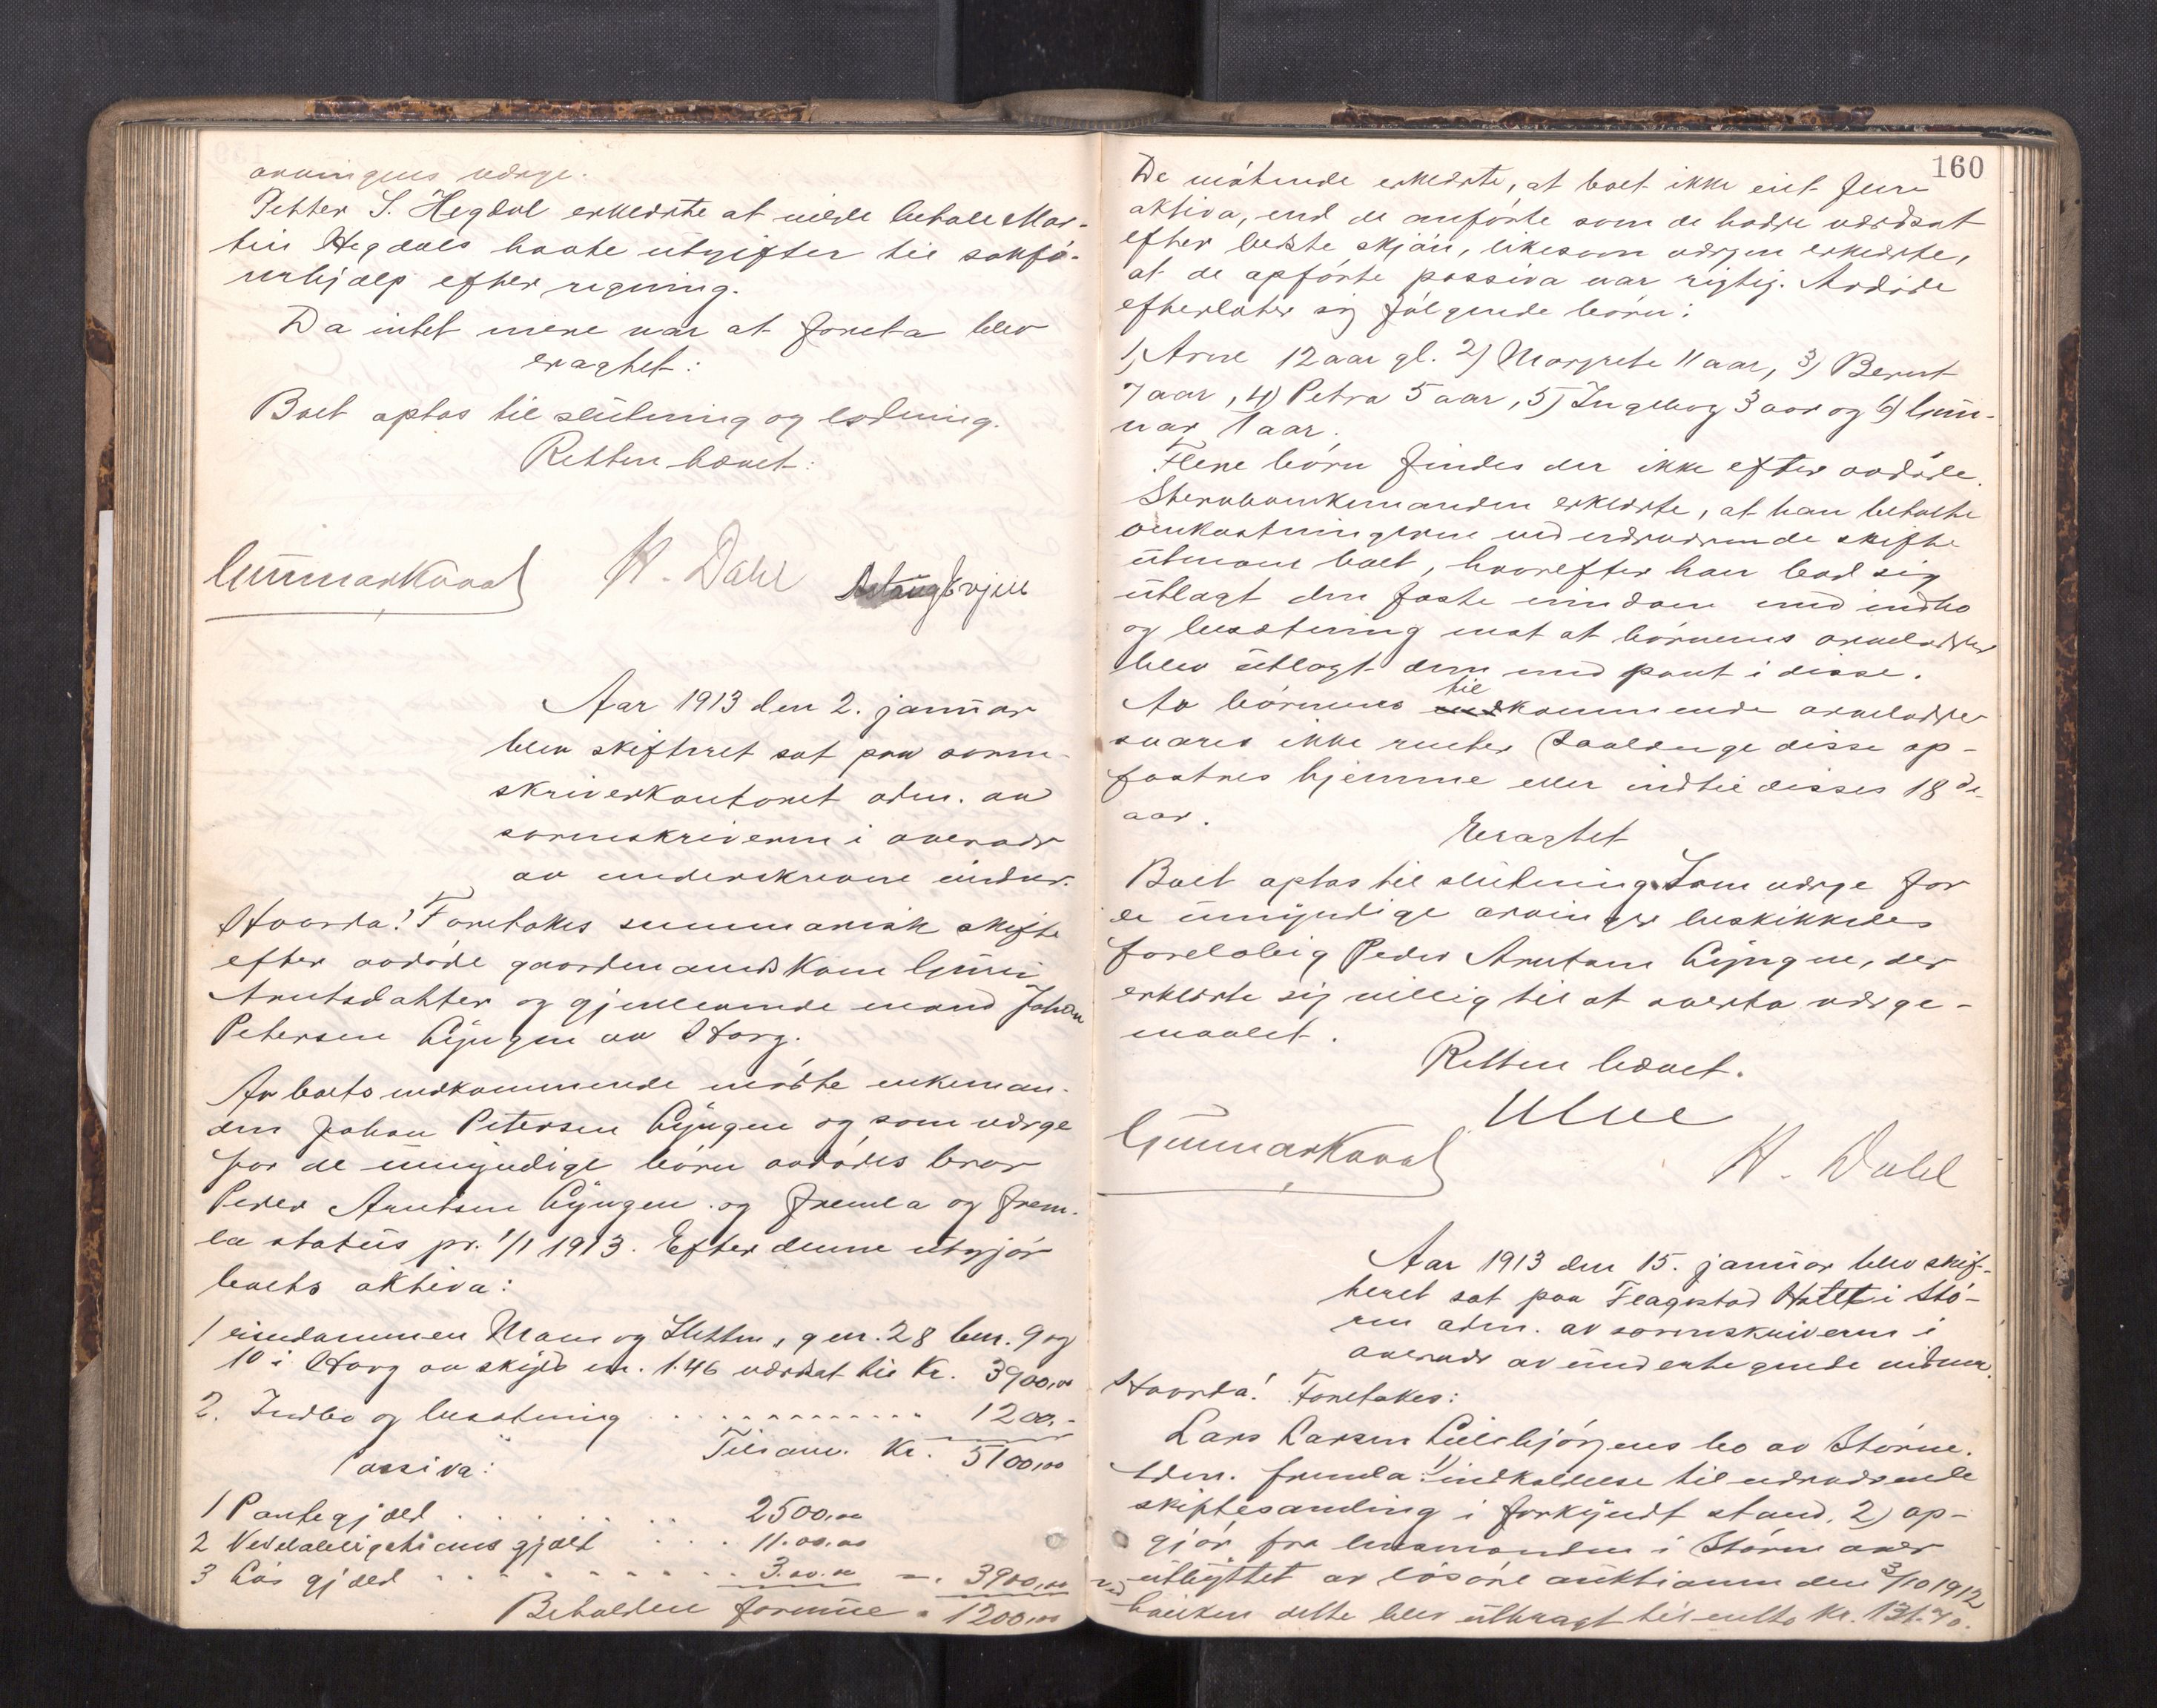 arvingens værge.
Petter S. Hegdal erklærte at ville betale Mar-
tin Hegdals havte utgifter til sakfø-
rerhjælp efter regning.
Da intet mere var at foreta blev
eragtet:
Boet optas til slutning og lodning.
Retten hævet:
Gunnar Kvaal H. Dahl
Aar 1913 den 2. januar
blev skifteret sat paa soren-
skriverkontoret adm. av
sorenskriveren i overvær
av underskrevne vidner.
Hvorda! Foretokes summarisk skifte
efter avdøde gaardmandskone Guru
Arntsdatter og gjenlevende mand Johan
Petersen Lyngen av Horg.
Av boets vedkommende møtte enkeman-
den Johan Petersen Lyngen og som værge
for de umyndige børn avdødes bror
Peder Arntsen Lyngen og fremla og frem-
la status pr. 1/1 1913. Efter denne utgjør
boets aktiva:
1 eiendommen Moan og Sletten, gnr. 28 bnr. 9 og
10 i Horg av skyld m. 1.46 værdsat til Kr. 3900,00
2. Indbo og besætning 1200.-
Tilsam. Kr. 5100,00
Passiva:
1 Pantegjæld 2500,00
2 Vedelobligations gjæld 11.00,00
3 Løs gjæld 3.00.00 3900,00
Beholden formue 1200,00
160
De møtende erklærte, at boet ikke eiet flere
aktiva, end de anførte som de hadde værdsat
efter bedste skjøn, likesom værgen erklærte,
at de opførte passiva var rigtig. Avdøde
efterlater sig følgende børn:
1) Arne 12 aar gl. 2) Margrete 11 aar, 3) Bernt
7 aar, 4) Petra 5 aar, 5) Ingeborg 3 aar og 6) Gun-
nar 1 aar.
Flere børn findes der ikke efter avdøde.
Stervboenkemanden erklærte, at han betalte
omkostningerne ved nærværende skifte
utenom boet, hvorefter han bad sig
utlagt den faste eiendom med indbo
og besætning mot at børnenes arvelodder
blev utlagt dem med pant i disse.
Av børnenes til kommende arvelodder
svares ikke renter saalænge disse op-
fostres hjemme eller indtil disses 18de
aar.
Eragtet
Boet optas til slutning. Som værge for
de umyndige arvinger beskikkedes
foreløbig Peder Arntsen Lyngen, der
erklærte sig villig til at overta værge-
maalet.
Retten hævet.
Gunnar Kvaal H. Dahl
Aar 1913 den 15. januar blev skif-
teret sat paa Flagstad Hotel i Stø-
ren adm. av sorenskriveren i
overvær av undertegnede vidner.
Hvorda! Foretokes:
Lars Larsen Lillebjørgens bo av Støren.
Adm. fremla: 1) indkaldelse til nærværende
skiftesamling i forkyndt stand, 2) op-
gjør fra lensmanden i Støren over
utbyttet av løsøre auktionen den 3/10 1912
ved hvilken dette blev utbragt til netto kr. 131.70.